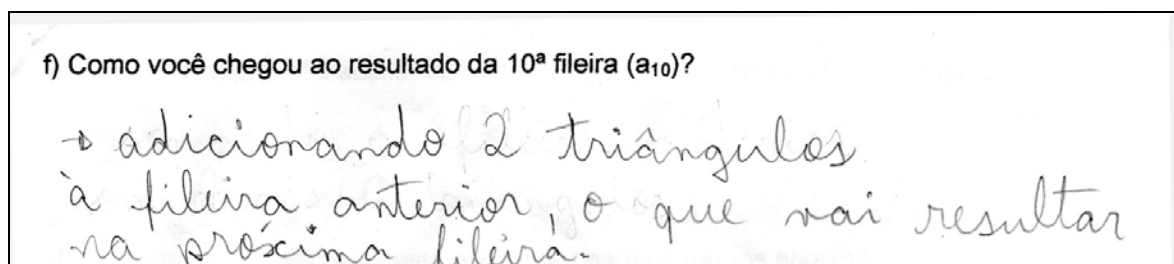 f) Como você chegou ao resultado da 10ª fileira (a₁₀)?
→ adicionando 2 triângulos
à fileira anterior, o que vai resultar
na próxima fileira.